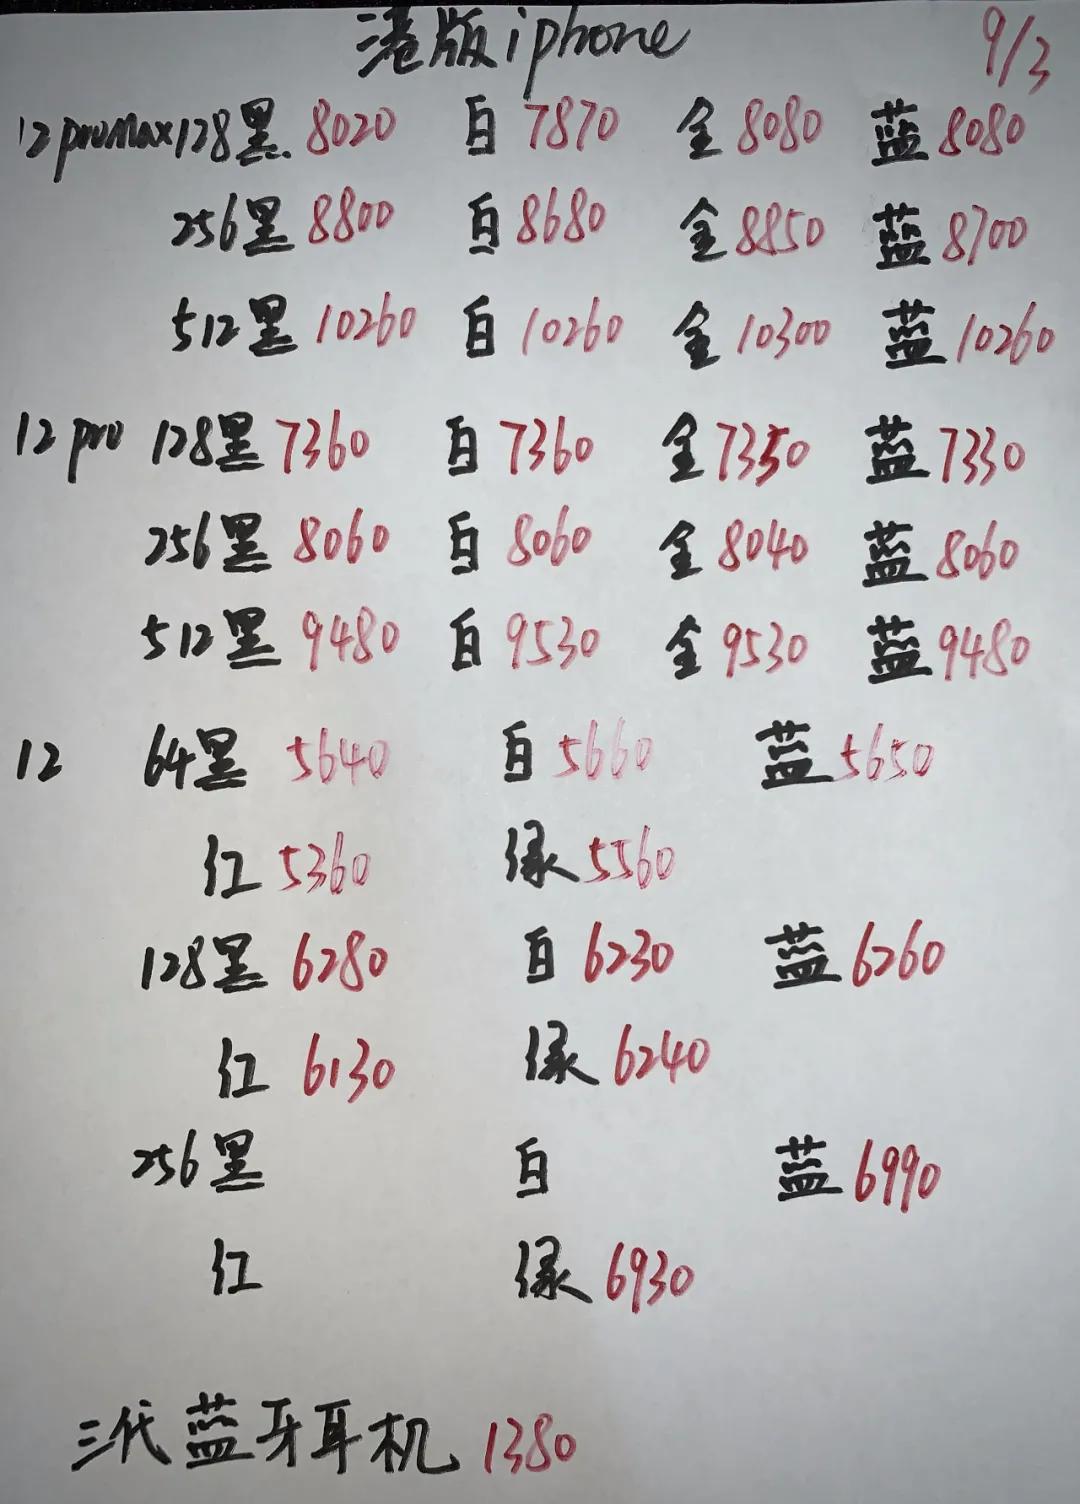 港版iphone 9/3
12promax128黑 8020 白 7870 金 8080 蓝 8080
256黑 8800 白 8680 金 8850 蓝 8700
512黑 10260 白 10260 金 10300 蓝 10260
12 pro 128黑 7360 白 7360 金 7350 蓝 7330
256黑 8060 白 8060 金 8040 蓝 8060
512黑 9480 白 9530 金 9530 蓝 9480
12 64黑 5640 白 5660 蓝 5650
红 5360 绿 5560
128黑 6280 白 6230 蓝 6260
红 6130 绿 6240
256黑 白 蓝 6990
红 绿 6930
三代蓝牙耳机 1380